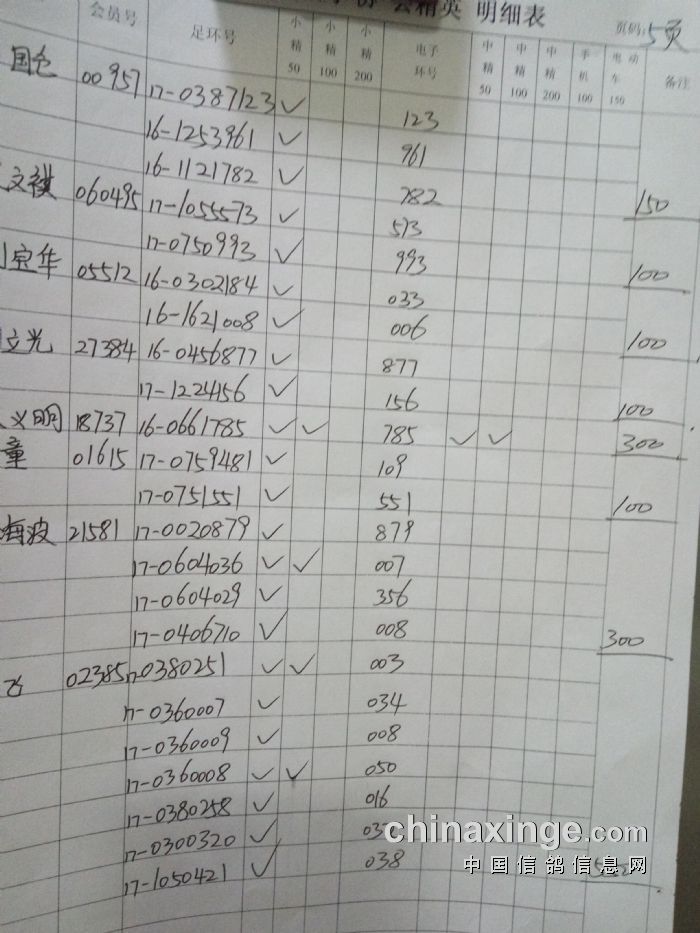 会精英 明细表
页码: 5页
会员号 足环号 小精50 小精100 小精200 电子环号 中精50 中精100 中精200 手机100 电动车150 备注
国仓 00957 17-0387123 ✓ 123
16-1253961 ✓ 961
16-1121782 ✓ 782 150
文祺 060495 17-1055573 ✓ 573
17-0750993 ✓ 993 100
宝华 05512 16-0302184 ✓ 033
16-1621008 ✓ 006 100
立光 27384 16-0456877 ✓ 877
17-1224156 ✓ 156 100
义明 18737 16-0661785 ✓ ✓ 785 ✓ ✓ 300
童 01615 17-0759481 ✓ 109
17-0751551 ✓ 551 100
海波 21581 17-0020879 ✓ 879
17-0604036 ✓ ✓ 007
17-0604029 ✓ 356
17-0406710 ✓ 008 300
飞 02385 17-0380251 ✓ ✓ 003
17-0360007 ✓ 034
17-0360009 ✓ 008
17-0360008 ✓ ✓ 050
17-0380258 ✓ 016
17-0300320 ✓
17-1050421 ✓ 038
chinaxinge.com
中国信鸽信息网